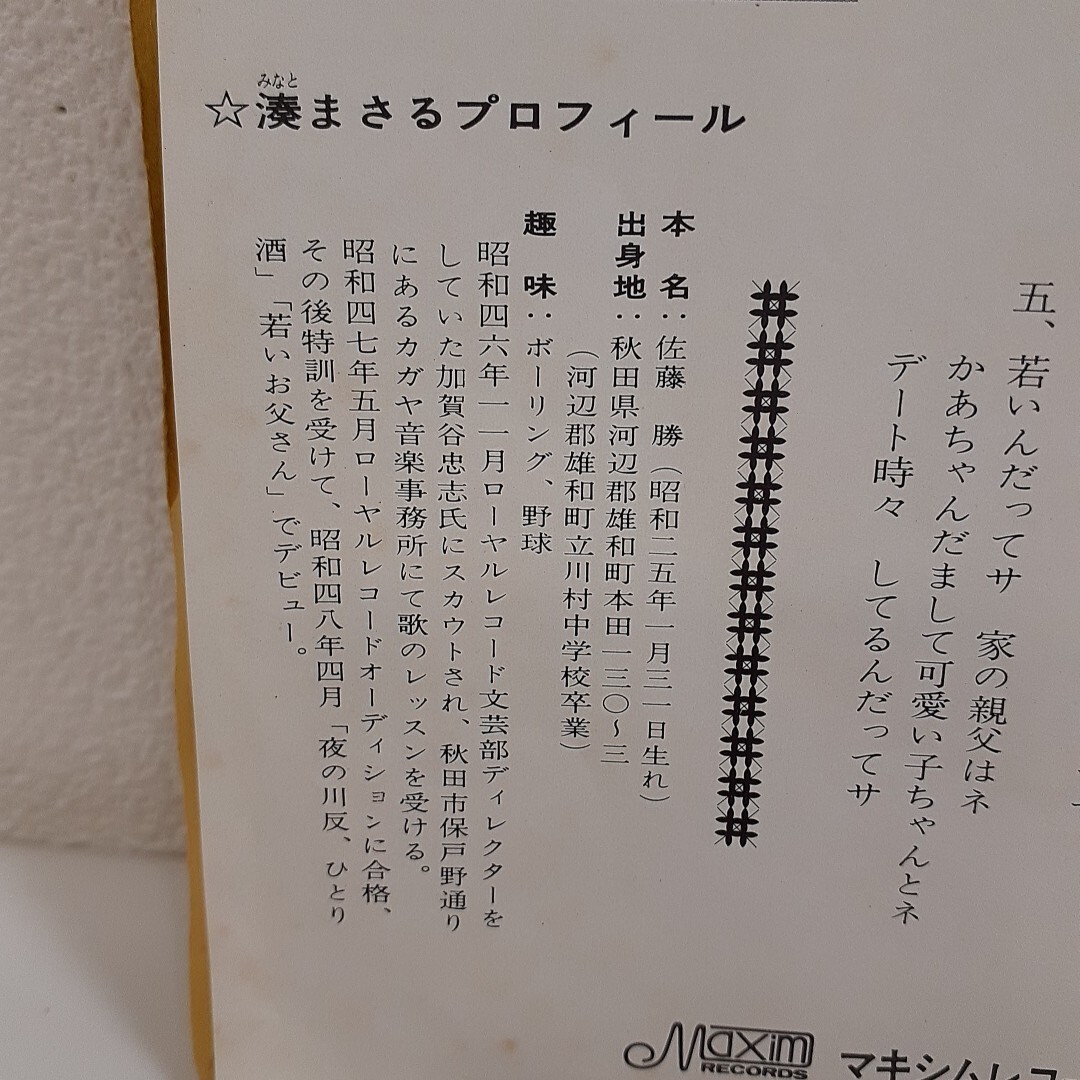 五、若いんだってサ　家の親父はネ
かあちゃんだまして可愛い子ちゃんとネ
デート時々　してるんだってサ
みなと
☆湊まさるプロフィール
本　名：佐藤　勝（昭和二五年一月三一日生れ）
出身地：秋田県河辺郡雄和町本田一三〇〜三
（河辺郡雄和町立川村中学校卒業）
趣　味：ボーリング、野球
昭和四六年一一月ローヤルレコード文芸部ディレクターを
していた加賀谷忠志氏にスカウトされ、秋田市保戸野通り
にあるカガヤ音楽事務所にて歌のレッスンを受ける。
昭和四七年五月ローヤルレコードオーディションに合格、
その後特訓を受けて、昭和四八年四月「夜の川反、ひとり
酒」「若いお父さん」でデビュー。
Maxim
RECORDS
マキシムレコ